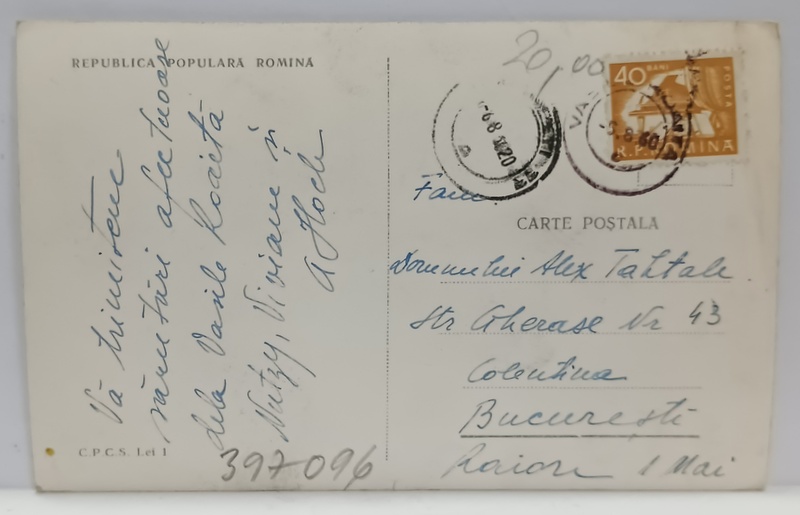 REPUBLICA POPULARĂ ROMINĂ
Vă trimitem
sărutări afectuoase
dela Vasile Roaită
Nutzy, Viviane și
A Hoch
C.P.C.S. Lei 1
397096
20,00
40 BANI
POSTA
R.P.ROMINA
-6.8 20
-5.8.60
Fam.
CARTE POȘTALĂ
Domnului Alex Tahtale
Str Gherase Nr 43
Colentina
București
Raion 1 Mai